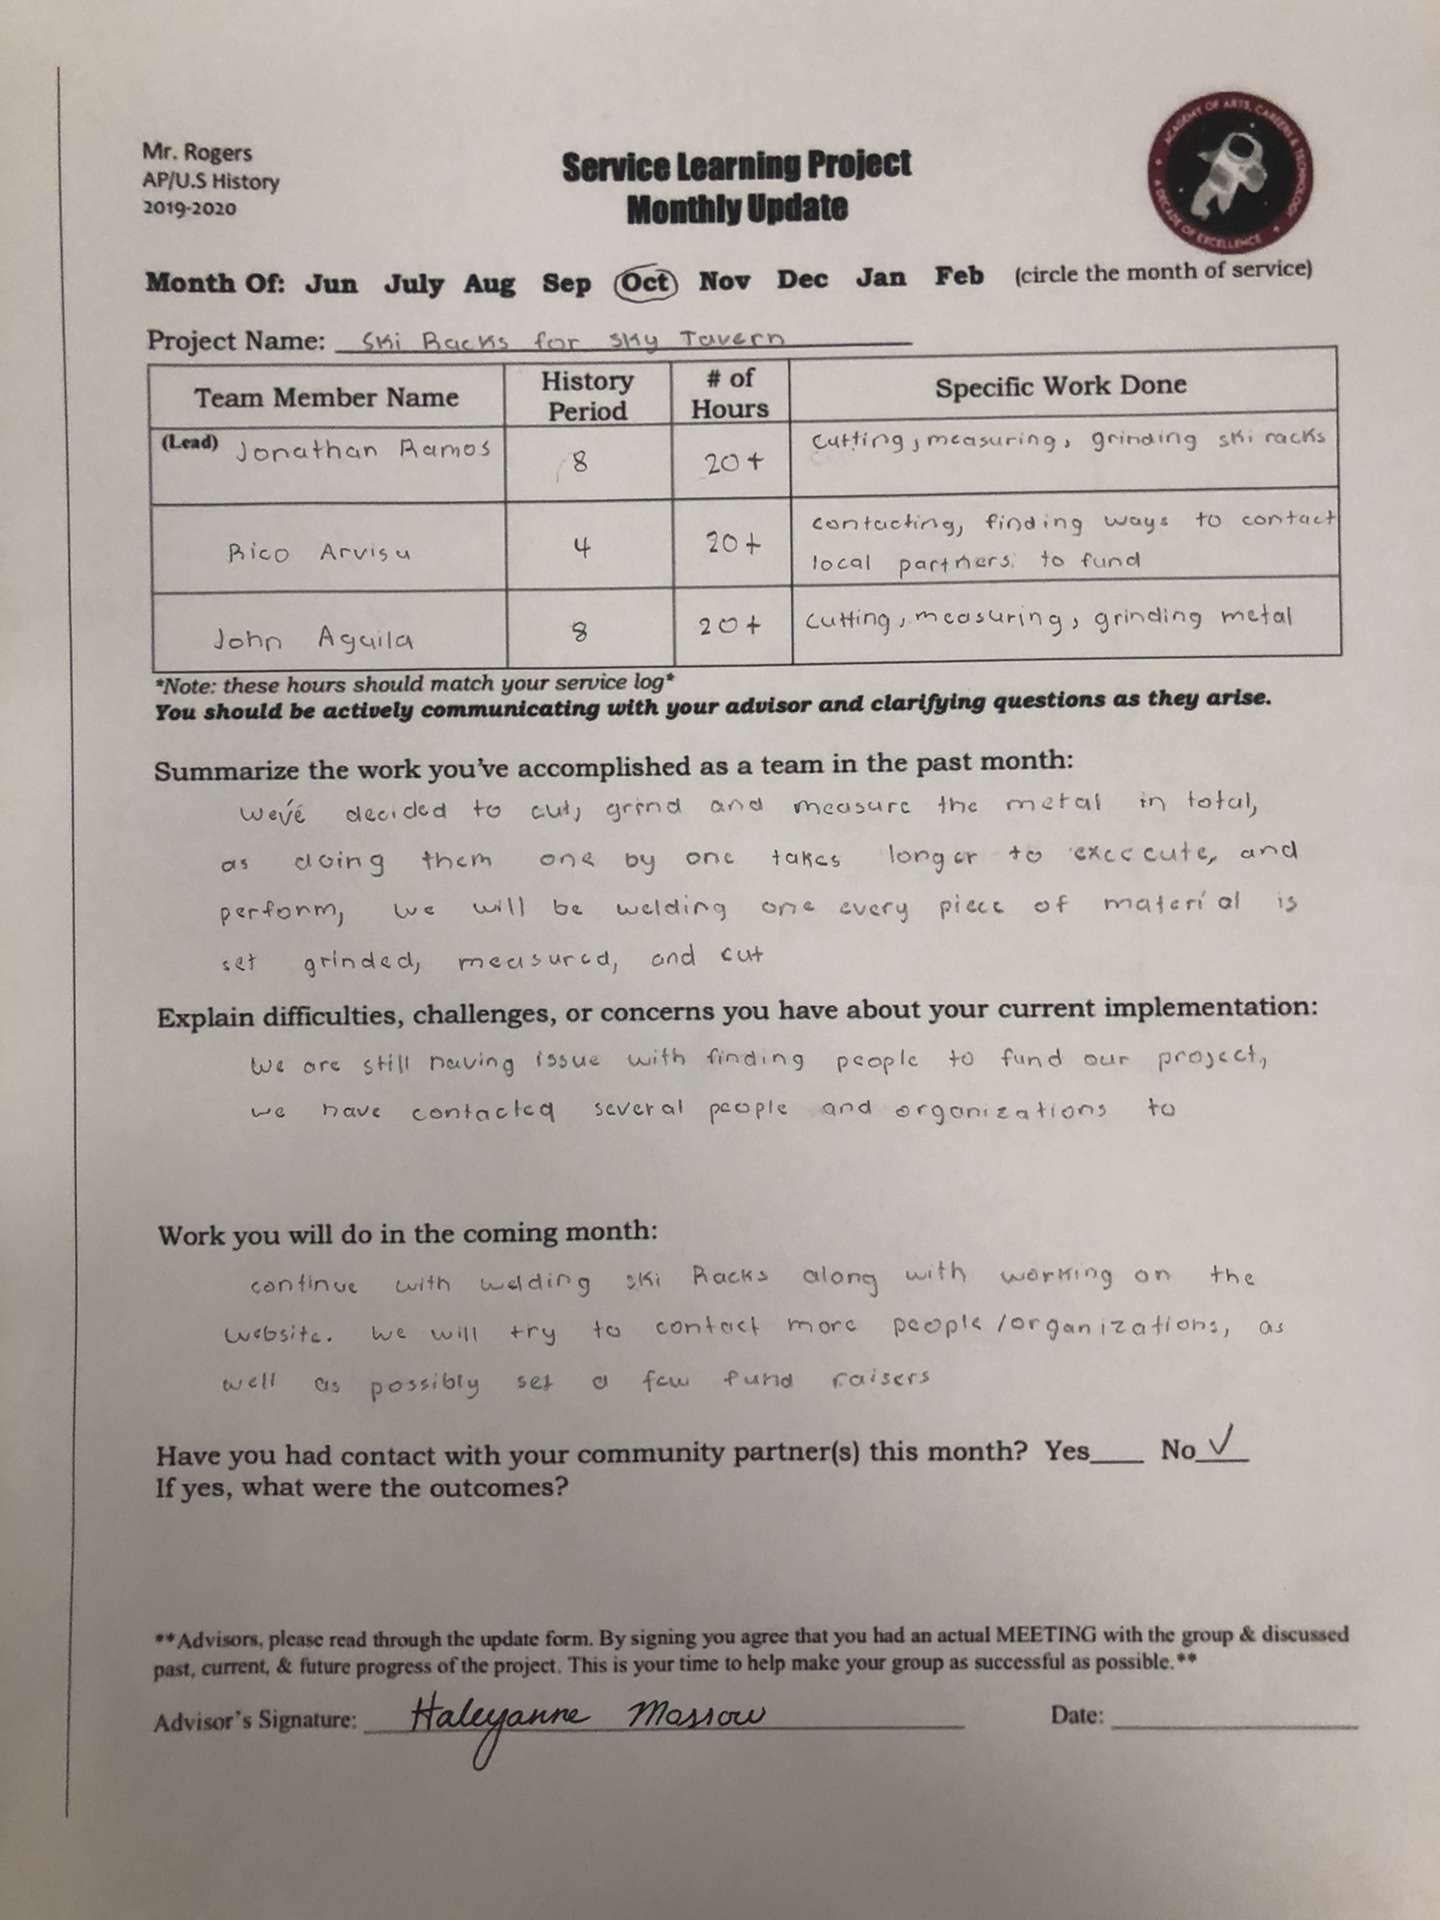 Mr. Rogers
AP/U.S History
2019-2020
Service Learning Project
Monthly Update
ACADEMY OF ARTS, CAREERS & TECHNOLOGY
A DECADE OF EXCELLENCE
Month Of: Jun July Aug Sep Oct Nov Dec Jan Feb (circle the month of service)
Project Name: Ski Racks for Sky Tavern
Team Member Name
History
Period
# of
Hours
Specific Work Done
(Lead) Jonathan Ramos
8
20+
cutting, measuring, grinding ski racks
Rico Arvisu
4
20+
contacting, finding ways to contact
local partners to fund
John Aguila
8
20+
cutting, measuring, grinding metal
*Note: these hours should match your service log*
You should be actively communicating with your advisor and clarifying questions as they arise.
Summarize the work you've accomplished as a team in the past month:
We've decided to cut, grind and measure the metal in total,
as doing them one by one takes longer to exeecute, and
perform, we will be welding one every piece of material is
set grinded, measured, and cut
Explain difficulties, challenges, or concerns you have about your current implementation:
We are still having issue with finding people to fund our project,
we have contacted several people and organizations to
Work you will do in the coming month:
continue with welding ski Racks along with working on the
website. We will try to contact more people/organizations, as
well as possibly set a few fund raisers
Have you had contact with your community partner(s) this month? Yes____ No_✓_
If yes, what were the outcomes?
**Advisors, please read through the update form. By signing you agree that you had an actual MEETING with the group & discussed
past, current, & future progress of the project. This is your time to help make your group as successful as possible.**
Advisor's Signature: Haleyanne Massow Date: